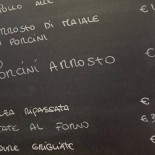 OLLO ALL
RROSTO DI MAIALE €
PORCINI
PORCINI ARROSTO €
RIPASSATA €
TATE AL FORNO €3
DURE GRIGLIATE €